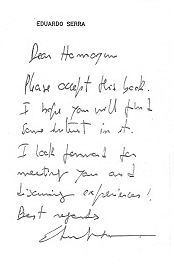 EDUARDO SERRA
Dear
Please accept this book.
I hope you will find
some interest in it.
I look forward for
meeting you and
discussing experiences!
Best regards